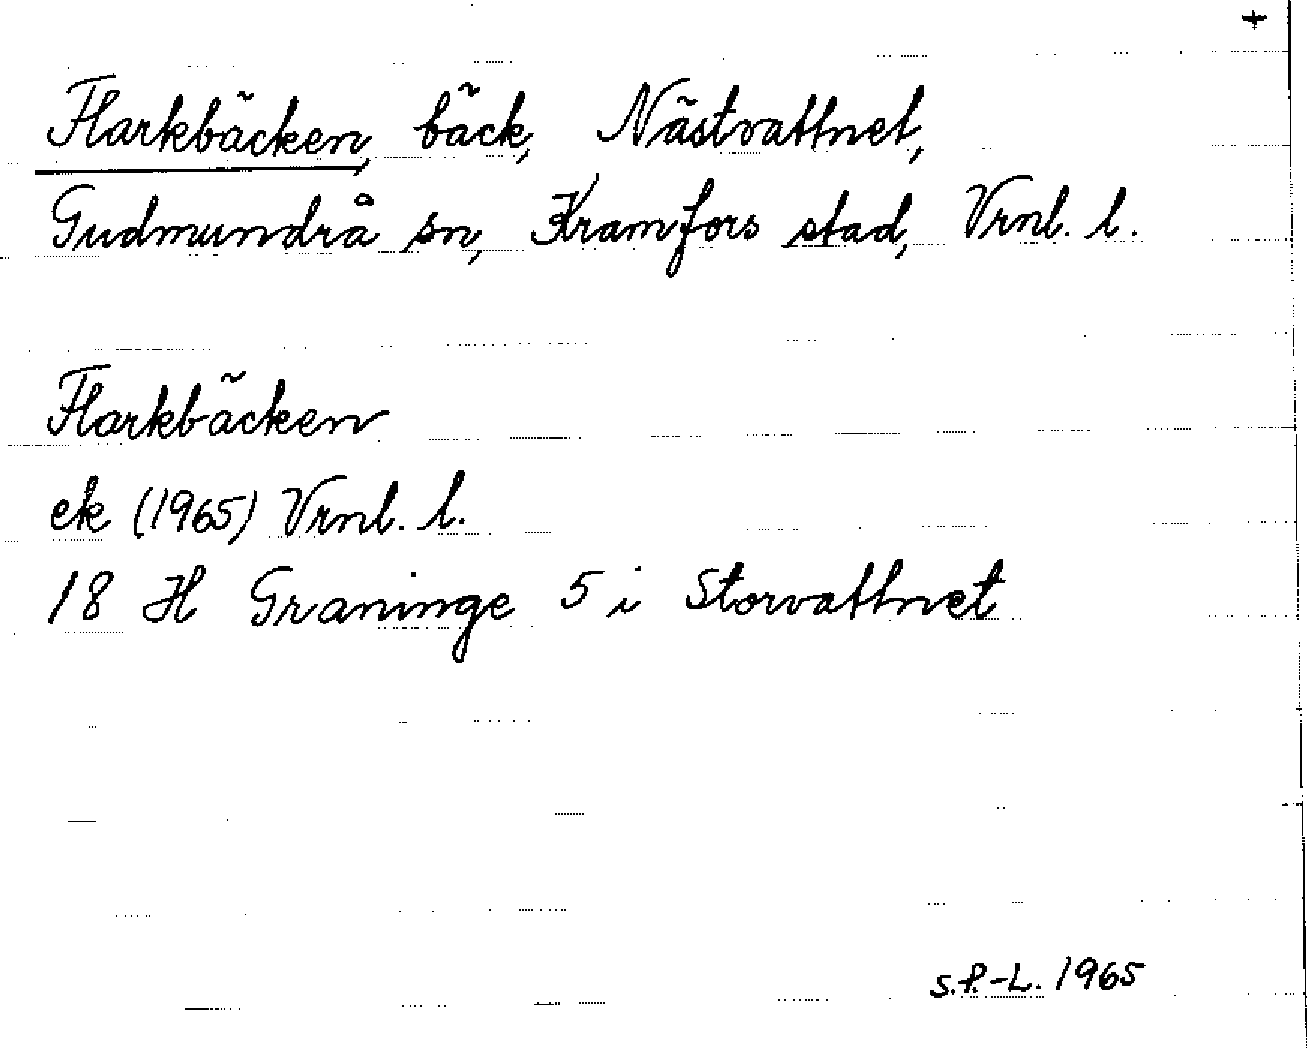 +
Flarkbäcken, bäck, Nästvattnet,
Gudmundrå sn, Kramfors stad, Vrnl. l.
Flarkbäcken
ek (1965) Vrnl. l.
18 H Graninge 5 i Storvattnet
S.P.-L. 1965